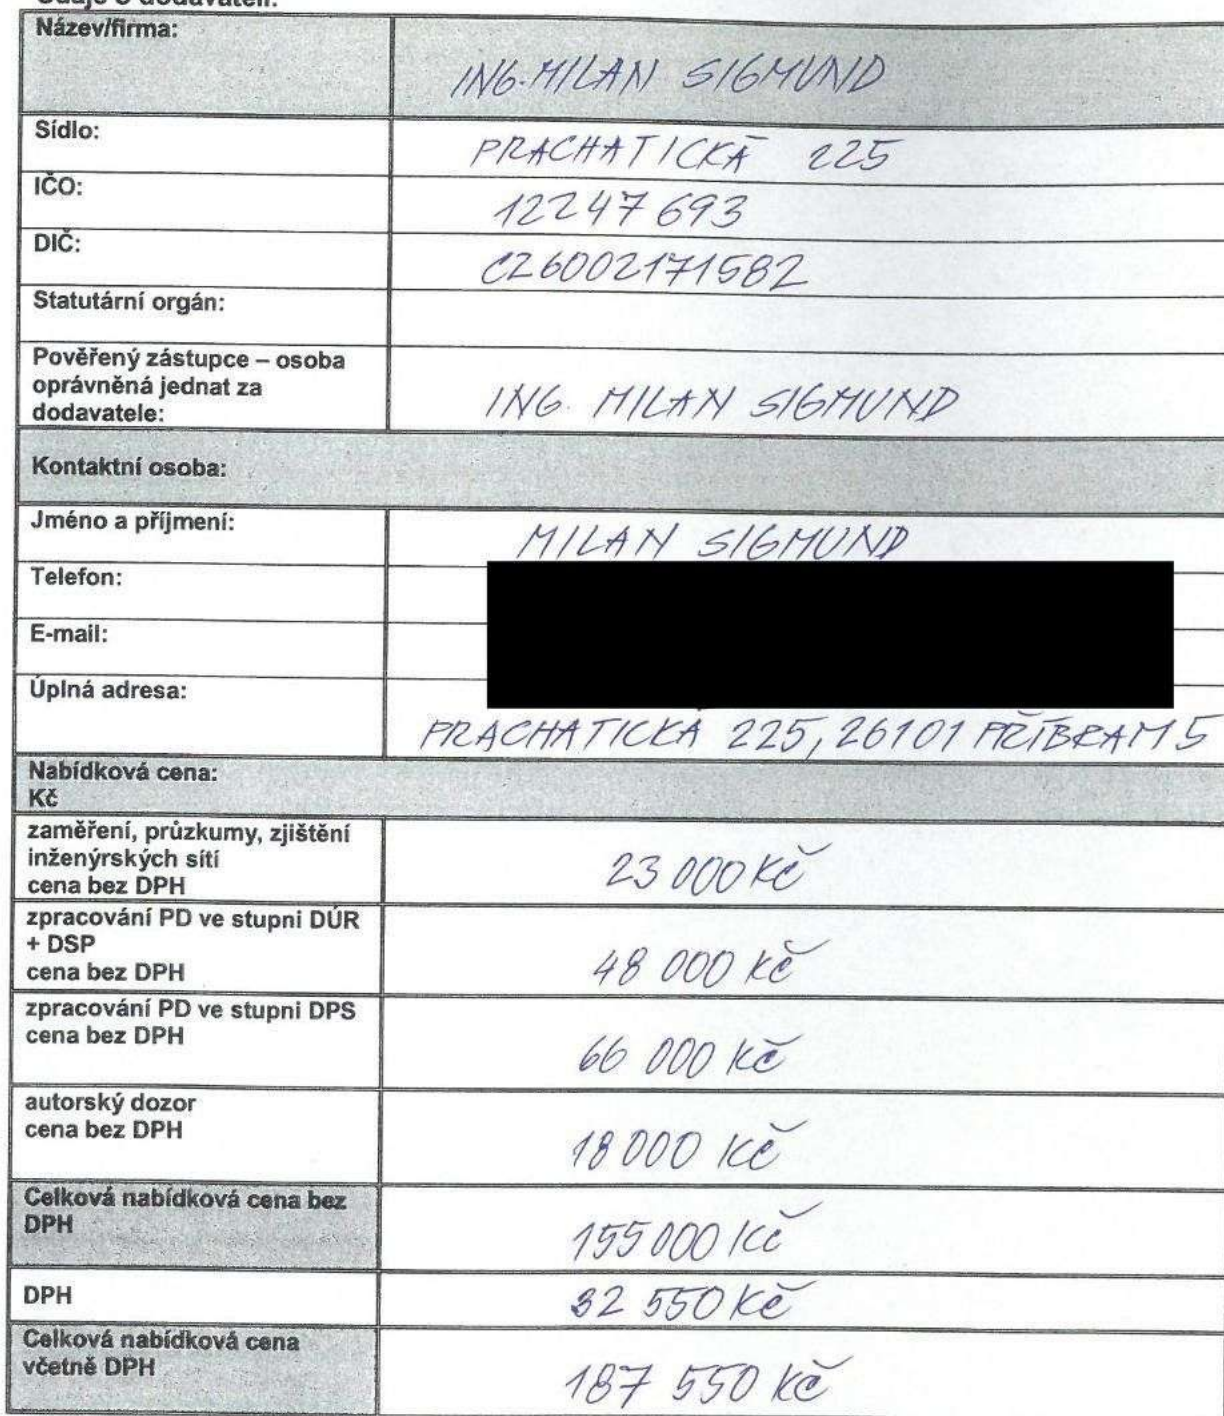 Údaje o dodavateli:
Název/firma:
ING. MILAN SIGMUND
Sídlo:
PRACHATICKÁ 225
IČO:
12247693
DIČ:
CZ6002171582
Statutární orgán:
Pověřený zástupce – osoba
oprávněná jednat za
dodavatele:
ING. MILAN SIGMUND
Kontaktní osoba:
Jméno a příjmení:
MILAN SIGMUND
Telefon:
E-mail:
Úplná adresa:
PRACHATICKÁ 225, 26101 PŘÍBRAM 5
Nabídková cena:
Kč
zaměření, průzkumy, zjištění
inženýrských sítí
cena bez DPH
23 000 Kč
zpracování PD ve stupni DÚR
+ DSP
cena bez DPH
48 000 Kč
zpracování PD ve stupni DPS
cena bez DPH
66 000 Kč
autorský dozor
cena bez DPH
18 000 Kč
Celková nabídková cena bez
DPH
155 000 Kč
DPH
32 550 Kč
Celková nabídková cena
včetně DPH
187 550 Kč